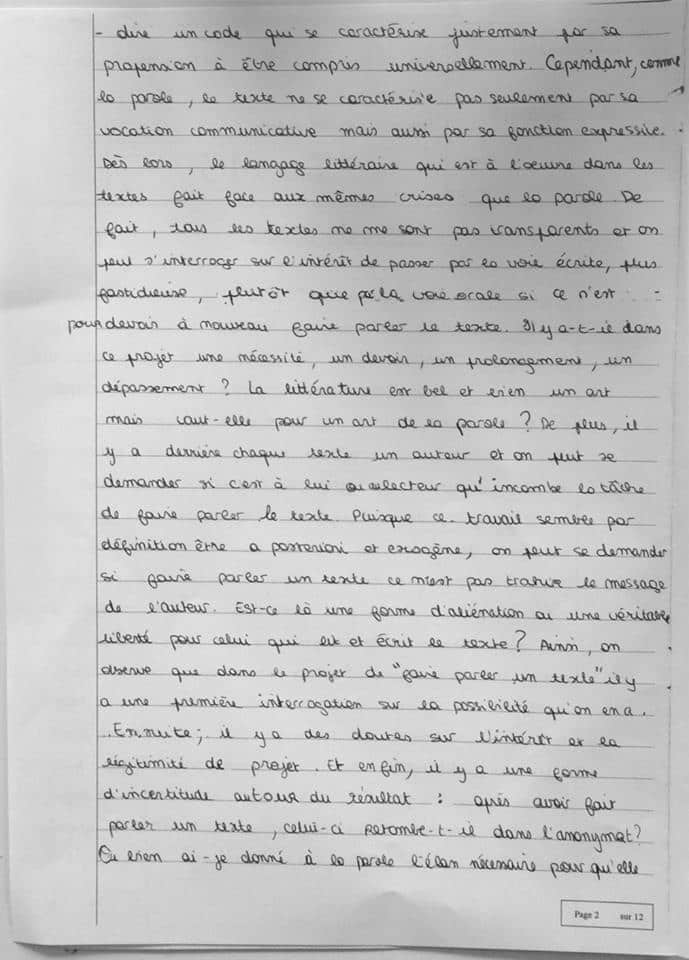 - dire un code qui se caractérise justement par sa
propension à être compris universellement. Cependant, comme
la parole, le texte ne se caractérise pas seulement par sa
vocation communicative mais aussi par sa fonction expressive.
Dès lors, le langage littéraire qui est à l'oeuvre dans les
textes fait face aux mêmes crises que la parole. De
fait, tous les textes ne me sont pas transparents et on
peut s'interroger sur l'intérêt de passer par la voie écrite, plus
fastidieuse, plutôt que par la voie orale si ce n'est
pour devoir à nouveau faire parler le texte. Il y a-t-il dans
ce projet une nécessité, un devoir, un prolongement, un
dépassement ? La littérature est bel et bien un art
mais vaut-elle pour un art de la parole ? De plus, il
y a derrière chaque texte un auteur et on peut se
demander si c'est à lui ou au lecteur qu'incombe la tâche
de faire parler le texte. Puisque ce travail semble par
définition être a posteriori et exogène, on peut se demander
si faire parler un texte ce n'est pas trahir le message
de l'auteur. Est-ce là une forme d'aliénation ou une véritable
liberté pour celui qui lit et écrit le texte ? Ainsi, on
observe que dans le projet de "faire parler un texte" il y
a une première interrogation sur la possibilité qu'on en a.
Ensuite, il y a des doutes sur l'intérêt et la
légitimité de projet. Et enfin, il y a une forme
d'incertitude autour du résultat : après avoir fait
parler un texte, celui-ci retombe-t-il dans l'anonymat ?
Ou bien ai-je donné à la parole l'élan nécessaire pour qu'elle
Page 2 sur 12